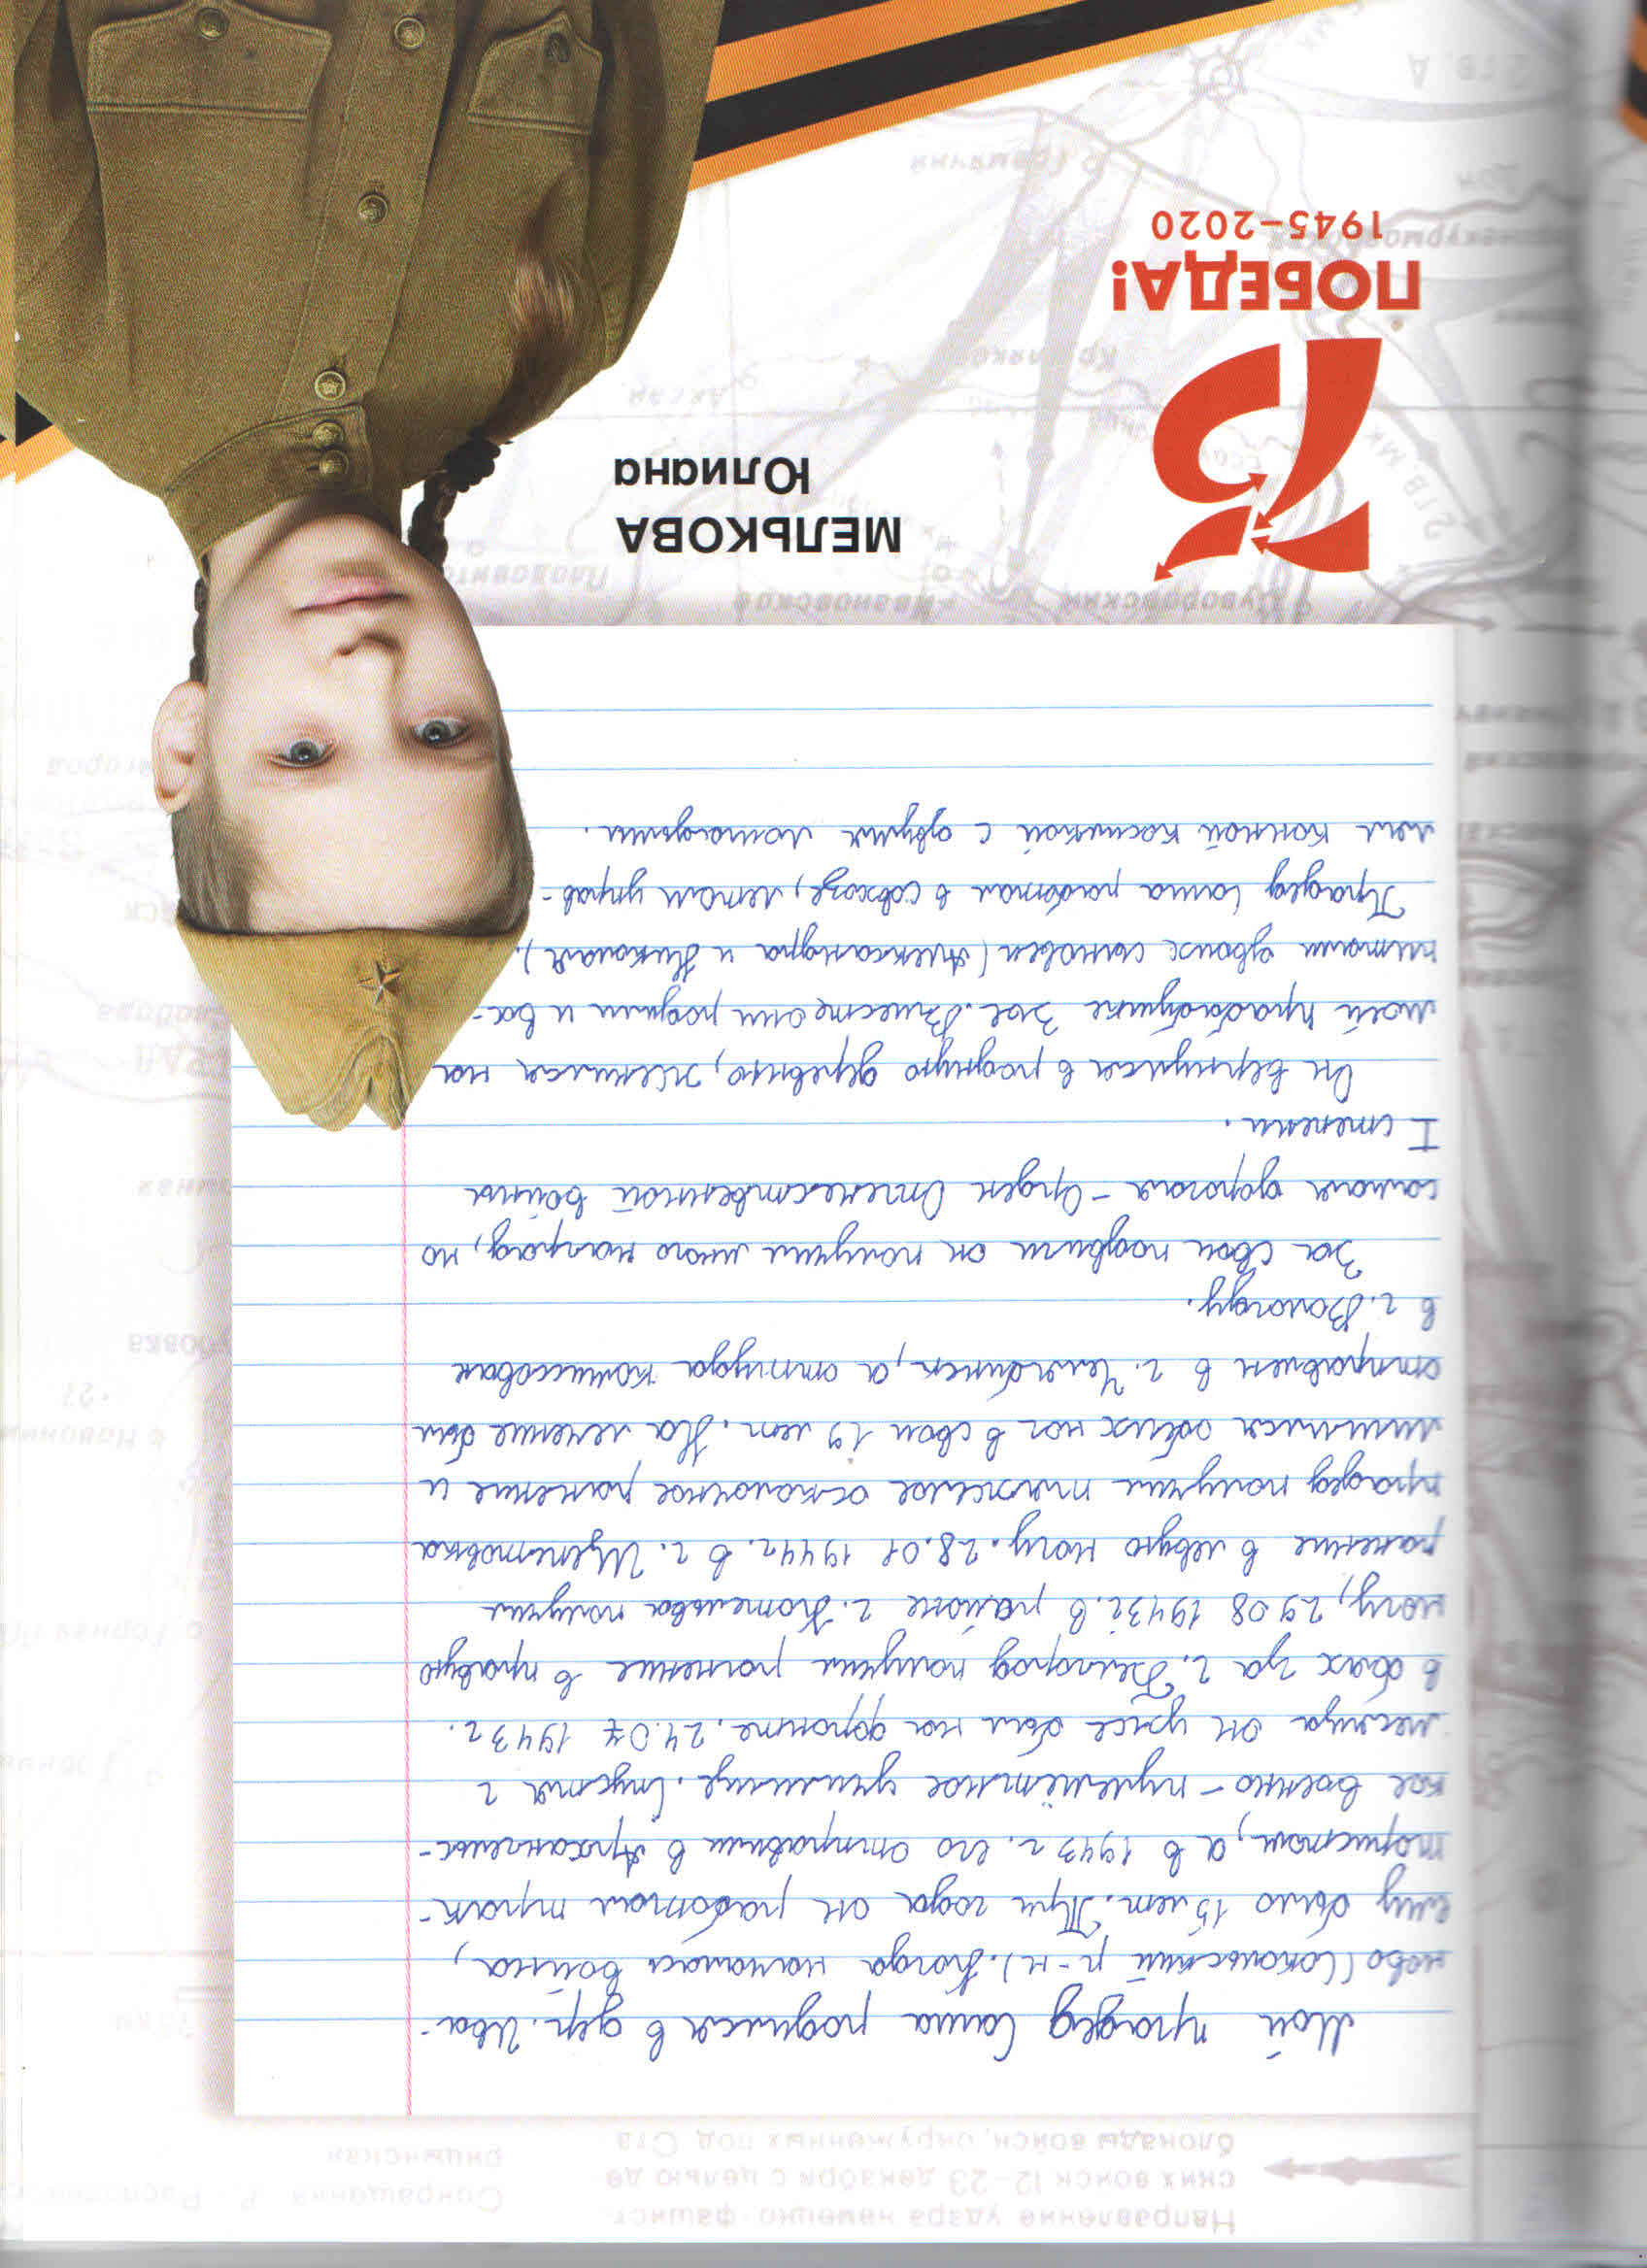 Направление удара немецко-фашист-
ских войск 12–23 декабря с целью де-
блокады войск, окруженных под Ста
Сокращения
рицынская
Мой прадед Саша родился в дер. Ива-
ново (Сокольский р-н). Когда началась война,
ему было 15 лет. Три года он работал трак-
тористом, а в 1943 г. его отправили в Архангельс-
кое военно-пулемётное училище. Спустя 2
месяца он уже был на фронте. 24.07 1943 г.
в боях за г. Белгород получил ранение в правую
ногу, 29 08 1943 г. в районе г. Котельва получил
ранение в левую ногу. 28.01 1944 г. в г. Щепетовка
прадед получил тяжелое осколочное ранение и
лишился обеих ног в свои 19 лет. На лечение был
отправлен в г. Челябинск, а оттуда комиссован
в г. Вологду.
За свои подвиги он получил много наград, но
самая дорогая – Орден Отечественной войны
I степени.
Он вернулся в родную деревню, женился на
моей прабабушке Зое. Вместе они родили и вос-
питали двоих сыновей (Александра и Николая).
Прадед Саша работал в совхозе, летом управ-
лял конной косилкой с двумя лошадьми.
Суворовский
Ивановское
МЕЛЬКОВА
Юлиана
2 гв. мк
Аксай
ПОБЕДА!
1945–2020
Дон
Громячий
2 гв. А